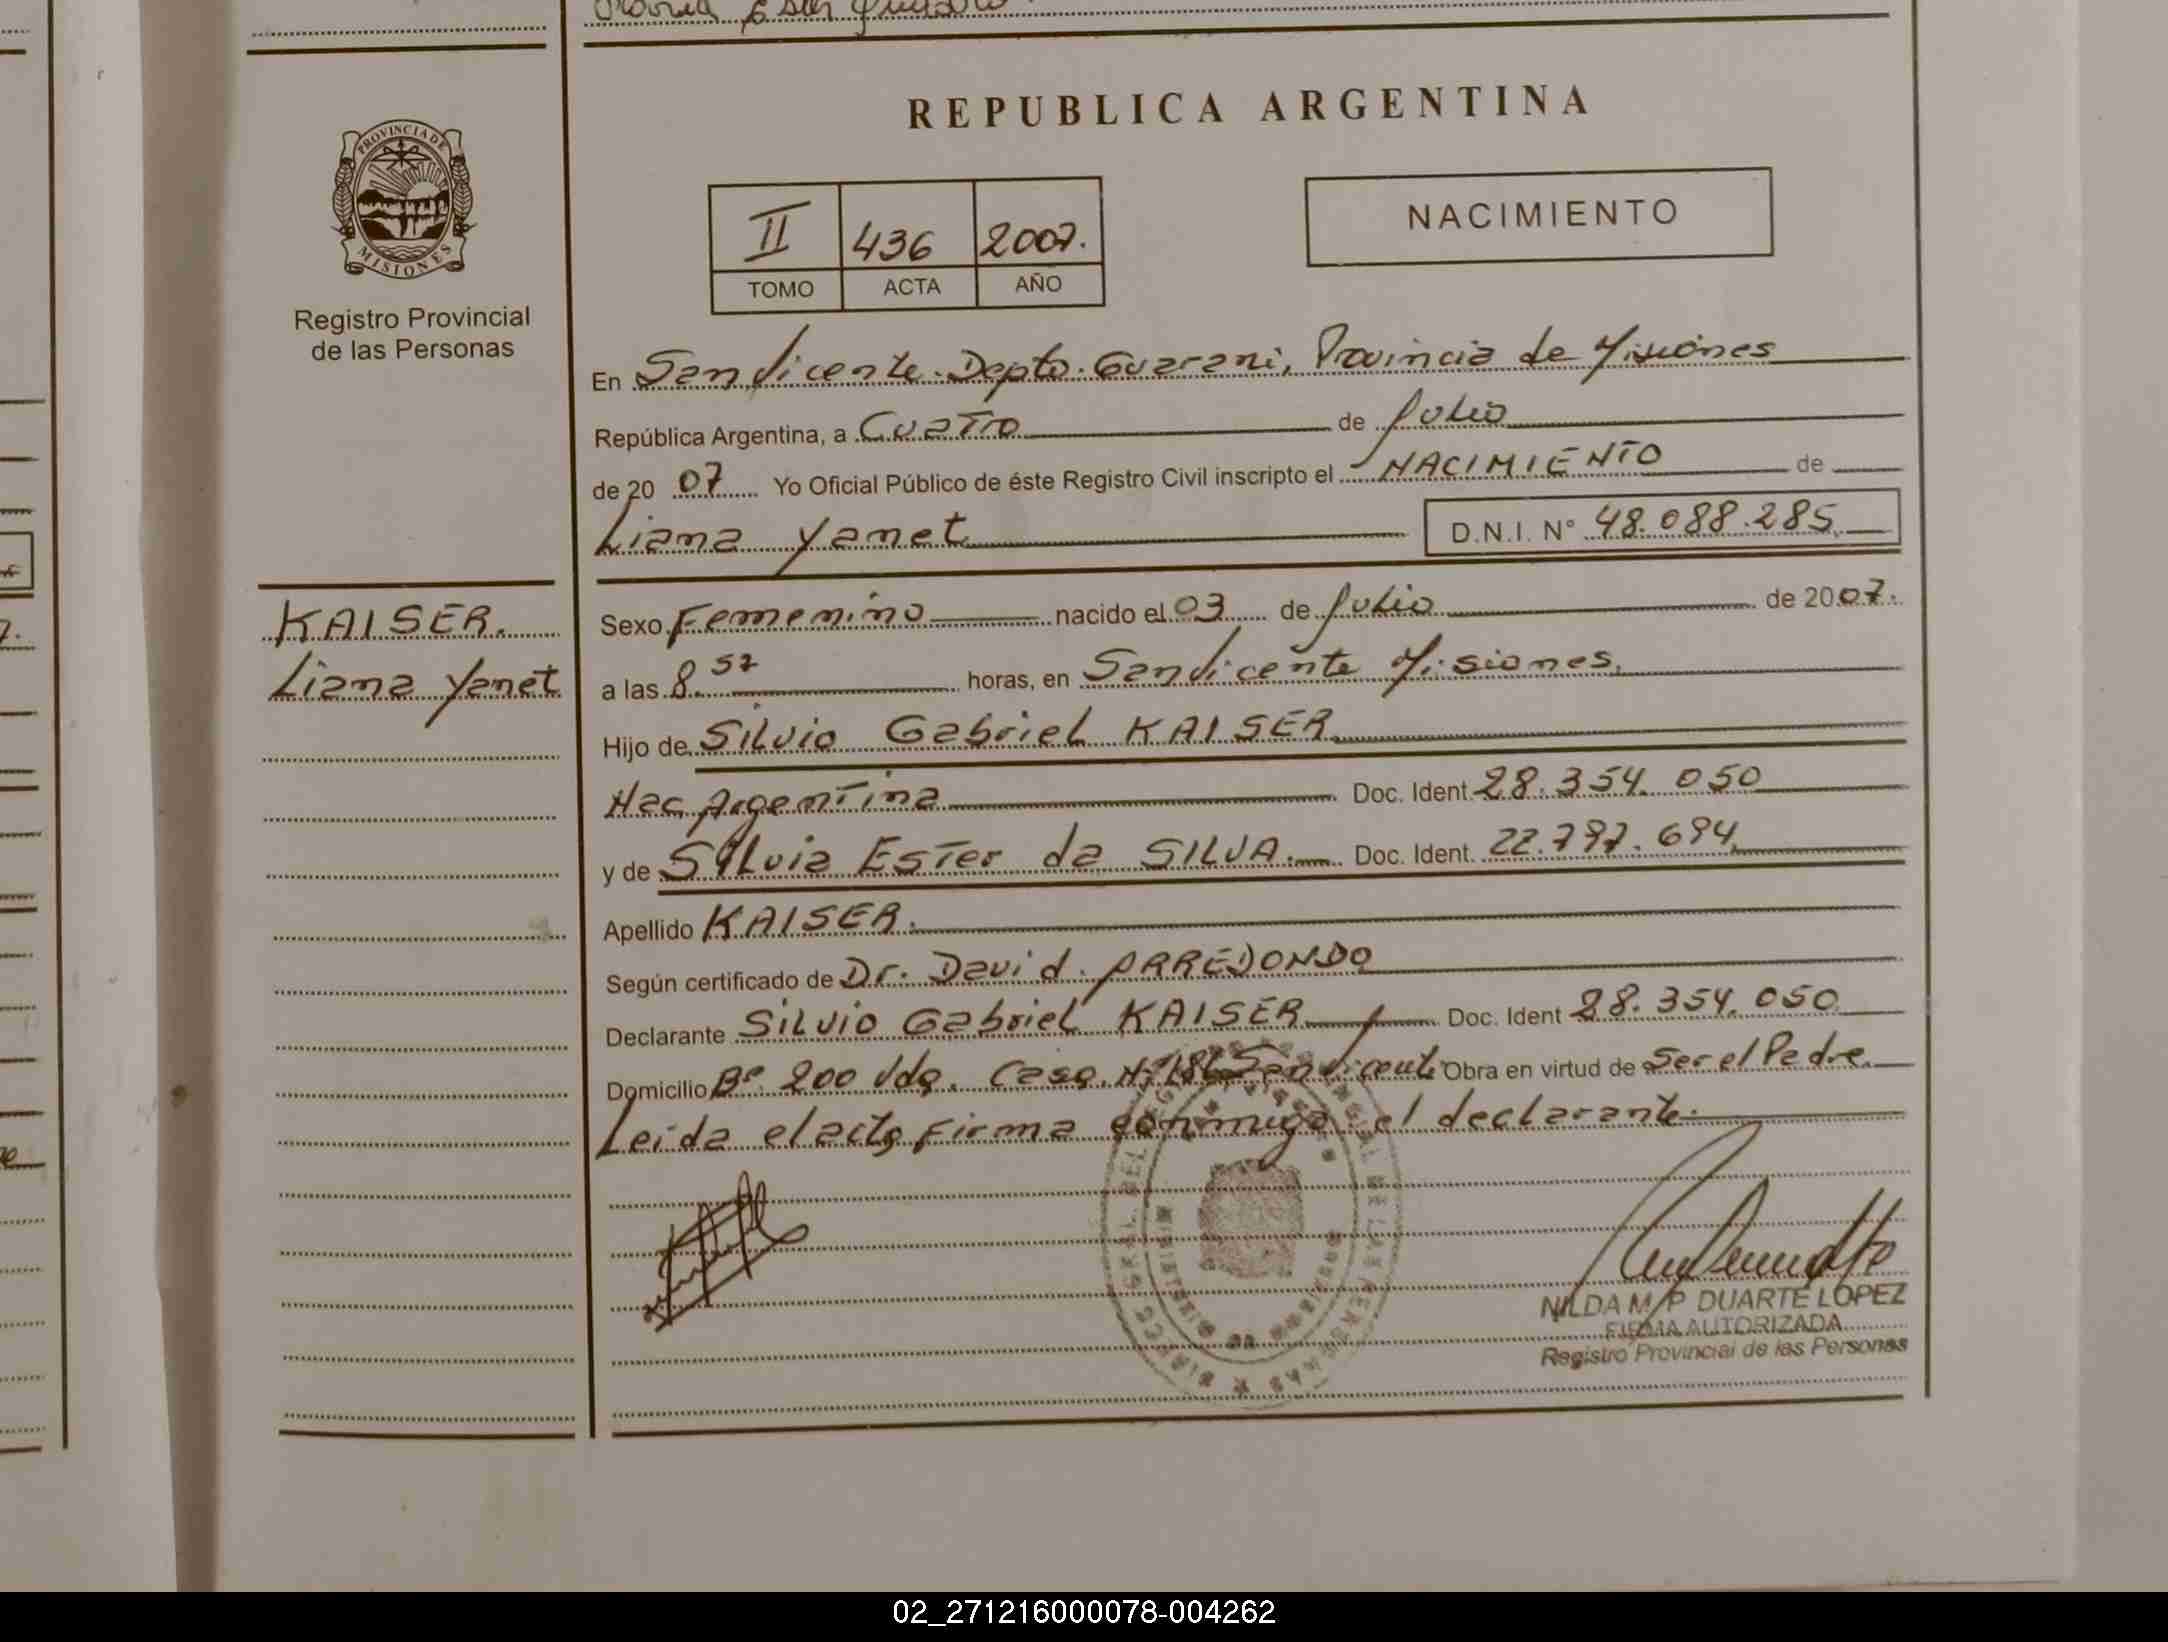 REPUBLICA ARGENTINA
PROVINCIA DE
MISIONES
Registro Provincial
de las Personas
II 436 2007.
TOMO ACTA AÑO
NACIMIENTO
En San Vicente. Depto. Guarani, Provincia de Misiones
República Argentina, a Cuatro de Julio
de 20 07 Yo Oficial Público de éste Registro Civil inscripto el NACIMIENTO de
Liana Yanet D.N.I. N° 48.088.285
KAISER.
Liana Yanet
Sexo Femenino nacido el 03 de Julio de 20 07.
a las 8.57 horas, en San Vicente Misiones.
Hijo de Silvio Gabriel KAISER
Nac. Argentina Doc. Ident. 28.354.050
y de Silvia Ester da SILVA. Doc. Ident. 22.797.694
Apellido KAISER.
Según certificado de Dr. David ARREDONDO
Declarante Silvio Gabriel KAISER Doc. Ident 28.354.050
Domicilio B° 200 Vdas. Casa N° 186 San Vicente Obra en virtud de Ser el Padre
Leida el acta, firma conmigo el declarante.
NILDA M. P. DUARTE LOPEZ
FIRMA AUTORIZADA
Registro Provincial de las Personas
02_271216000078-004262